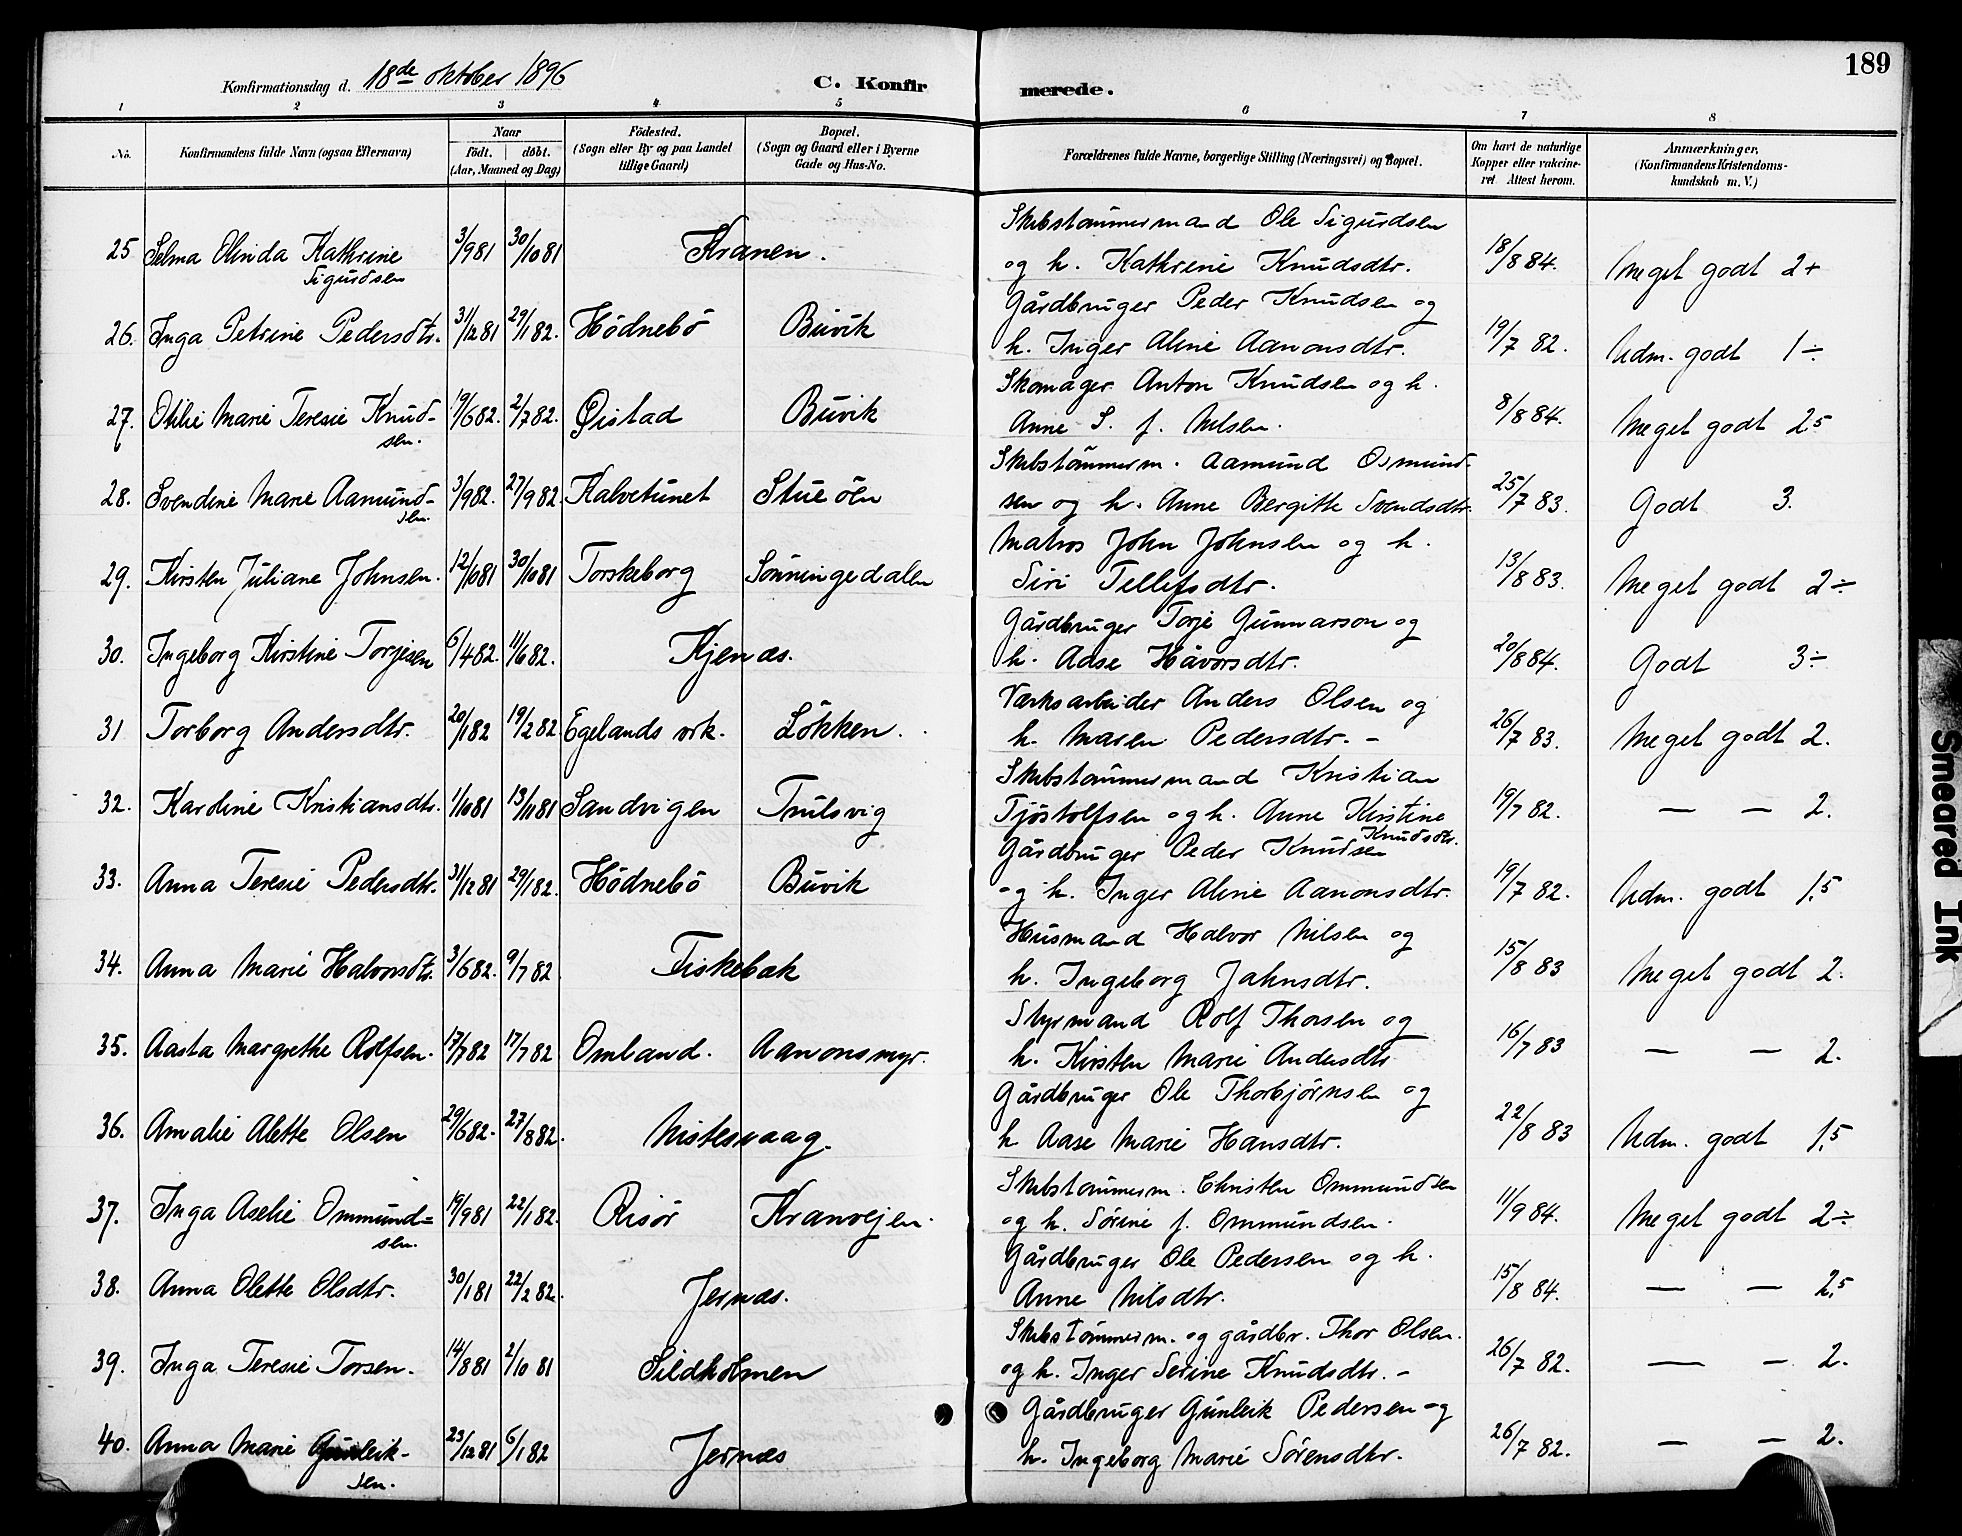 189
Konfirmationsdag d. 18de oktober 1896 C. Konfirmerede.
1 2 3 4 5 6 7 8
No. Konfirmandens fulde Navn (ogsaa Efternavn) Naar Födested. Bopæl. Forældrenes fulde Navne, borgerlige Stilling (Næringsvei) og Bopæl. Om havt de naturlige Anmærkninger,
födt. döbt. (Sogn eller By og paa Landet (Sogn og Gaard eller i Byerne Kopper eller vakcine- (Konfirmandens Kristendoms-
(Aar, Maaned og Dag) tillige Gaard) Gade og Hus-No. ret Attest herom. kundskab m. V.)
Skibstømmermand Ole Sigurdsen
25 Selma Olinda Kathrine 3/9 81 30/10 81 Kranen. og h. Kathrine Knudsdtr. 18/8 84. Meget godt 2+
Sigurdsen
Gårdbruger Peder Knudsen og
26. Inga Petrine Pedersdtr. 31/12 81 29/1 82. Hödnebö Buvik h. Inger Aline Aanonsdtr. 19/7 82. Udm. godt 1÷
Skomager Anton Knudsen og h.
27. Otilie Marie Teresie Knud- 19/6 82. 2/7 82. Øistad Buvik Anne S. f. Nilsen. 8/8 84. Meget godt 2,5
sen.
Skibstömmerm. Aamund Osmund-
28. Svendine Marie Aamund- 3/9 82. 27/9 82 Kalvetunet Stueölen sen og h. Anne Bergitte Svendsdtr. 25/7 83. Godt 3.
sen.
Matros John Johnsen og h.
29. Kirsten Juliane Johnsen. 12/10 81 30/10 81 Torskeborg Sönningedalen Siri Tellefsdtr. 13/8 83. Meget godt 2÷
Gårdbruger Torje Gunnarson og
30. Ingeborg Kirstine Torjesen 6/4 82. 11/6 82. Kjenæs. h. Aase Håvorsdtr. 20/8 84. Godt 3÷
Værksarbeider Anders Olsen og
31 Torborg Andersdtr. 20/1 82 19/2 82 Egelands vrk. Lökken. h. Maren Pedersdtr. – 26/7 83. Meget godt 2.
Skibstømmermand Kristian
32. Karoline Kristiansdtr. 1/10 81 13/11 81 Sandvigen Trulsvig Tjöstolfsen og h. Anne Kirstine 19/7 82. — — 2.
Knudsdtr.
Gårdbruger Peder Knudsen
33. Anna Teresie Pedersdtr. 31/12 81 29/1 82. Hödnebö Buvik og h. Inger Aline Aanonsdtr. 19/7 82. Udm. godt 1,5
Husmand Halvor Nilsen og
34. Anna Marie Halvorsdtr. 3/6 82. 9/7 82 Fiskebæk h. Ingeborg Jahnsdtr. 15/8 83 Meget godt 2.
Styrmand Rolf Thorsen og
35. Aasta Margrethe Rolfsen. 17/7 82 17/7 82 Omland. Aanonsmyr. h. Kirsten Marie Andersdtr 16/7 83 — — 2.
Gårdbruger Ole Thorbjørnsen og
36. Amalie Alette Olsen 29/6 82. 27/8 82. Nistesvaag. h Aase Marie Hansdtr. 22/8 83 Udm. godt 1,5
Skibstømmerm. Christen Ommundsen
37. Inga Aselie Ommund- 19/9 81 22/1 82. Risör Kranvejen. og h. Sörine f. Ommundsen. 11/9 84. Meget godt 2÷
sen.
Gårdbruger Ole Pedersen og h.
38. Anna Olette Olsdtr. 30/1 81 22/2 82. Jernæs. Anne Nilsdtr. 15/8 84. — — 2,5
Skibstømmerm. og gårdbr. Thor Olsen.
39. Inga Teresie Torsen. 14/8 81 2/10 81 Sildholmen og h. Inger Serine Knudsdtr. – 26/7 82. — — 2.
Gårdbruger Gunleik Pedersen og
40. Anna Marie Gunleik- 23/12 81 6/1 82 Jernæs h. Ingeborg Marie Sörensdtr. 26/7 82. — — 2.
sen.
Smeared Ink